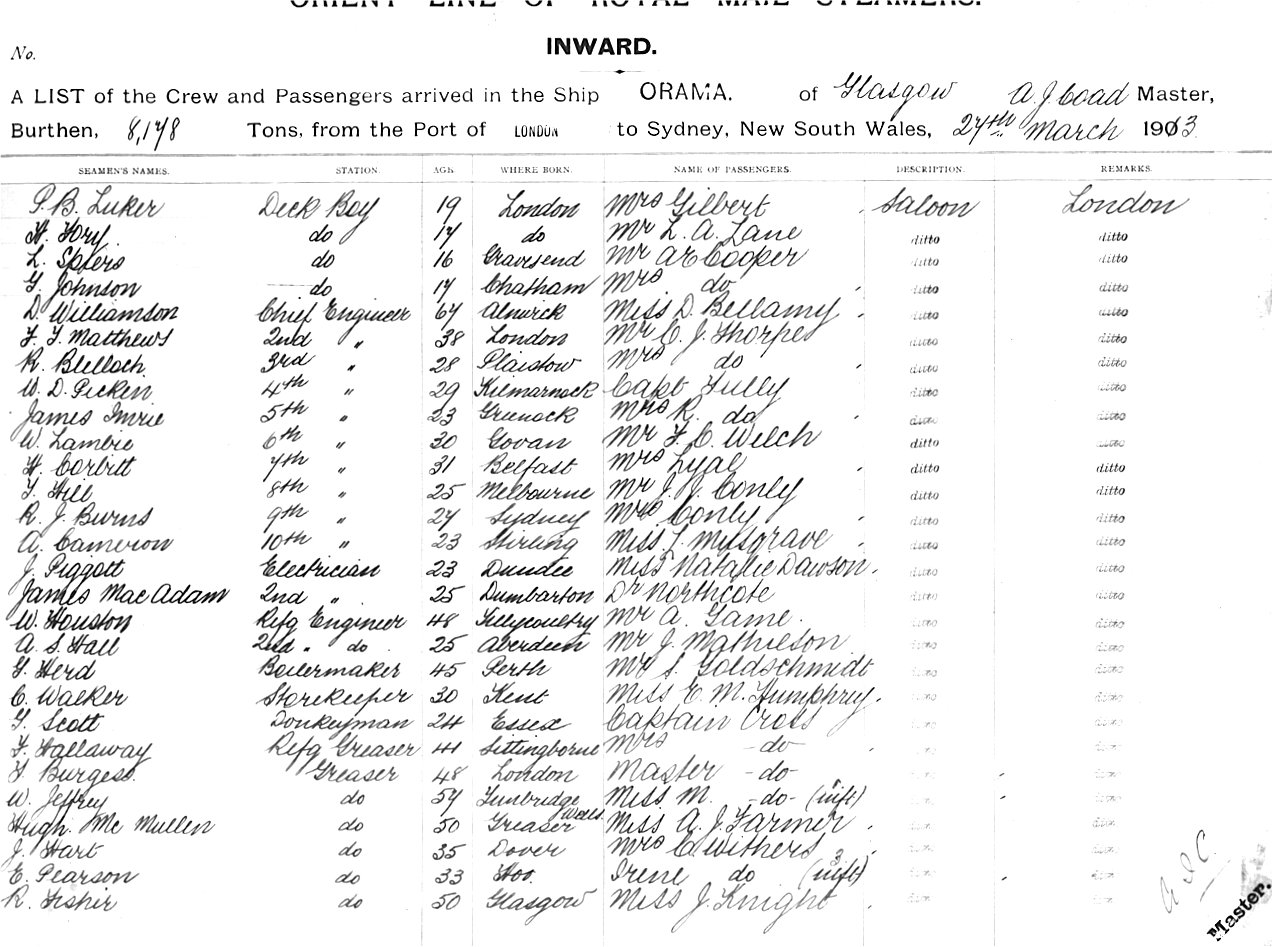 ORIENT LINE OF ROYAL MAIL STEAMERS.
INWARD.
No.
A LIST of the Crew and Passengers arrived in the Ship ORAMA. of Glasgow A. J. Coad Master,
Burthen, 8,178 Tons, from the Port of LONDON to Sydney, New South Wales, 27th March 1903
SEAMEN'S NAMES. STATION. AGE. WHERE BORN. NAME OF PASSENGERS. DESCRIPTION. REMARKS.
P. B. Luker Deck Boy 19 London Mrs Gilbert Saloon London
H. Fory do 17 do Mr L. A. Lane ditto ditto
L. Spiers do 16 Gravesend Mr A E Cooper ditto ditto
G. Johnson do 17 Chatham Mrs do ditto ditto
D. Williamson Chief Engineer 67 Alnwick Miss D. Bellamy ditto ditto
F. J. Matthews 2nd " 38 London Mr C. J. Thorpe ditto ditto
R. Blelloch 3rd " 28 Plaistow Mrs do ditto ditto
W. D. Picken 4th " 29 Kilmarnock Capt Tully ditto ditto
James Imrie 5th " 23 Greenock Mrs R. do ditto ditto
W. Lambie 6th " 30 Govan Mr F. C. Welch ditto ditto
H. Corbitt 7th " 31 Belfast Mrs Lyal ditto ditto
T. Hill 8th " 25 Melbourne Mr J. Conly ditto ditto
R. J. Burns 9th " 27 Sydney Mrs Conly ditto ditto
A. Cameron 10th " 23 Stirling Miss Musgrave ditto ditto
J. Piggott Electrician 23 Dundee Miss Natalie Dawson ditto ditto
James MacAdam 2nd " 25 Dumbarton Dr Northcote ditto ditto
W. Houston Refg Engineer 48 Tillycoultry Mr A. Game ditto ditto
A. S. Hall 2nd " do 25 Aberdeen Mr J. Mathieson ditto ditto
G. Herd Boilermaker 45 Perth Mr S. Goldschmidt ditto ditto
C. Walker Storekeeper 30 Kent Miss E. M. Humphrey ditto ditto
G. Scott Donkeyman 24 Essex Captain Cross ditto ditto
F. Hallaway Refg Greaser 41 Sittingborne Mrs do ditto ditto
F. Burgess Greaser 48 London Master do ditto ditto
W. Jeffrey do 57 Tunbridge Wells Miss M. do (inft) ditto ditto
Hugh McMullen do 50 Greaser Miss A. J. Farmer ditto ditto
J. Hart do 35 Dover Mrs C. Withers ditto ditto
E. Pearson do 33 Hoo. Irene do (inft) ditto ditto
R. Fisher do 50 Glasgow Miss J. Knight ditto ditto
Master.